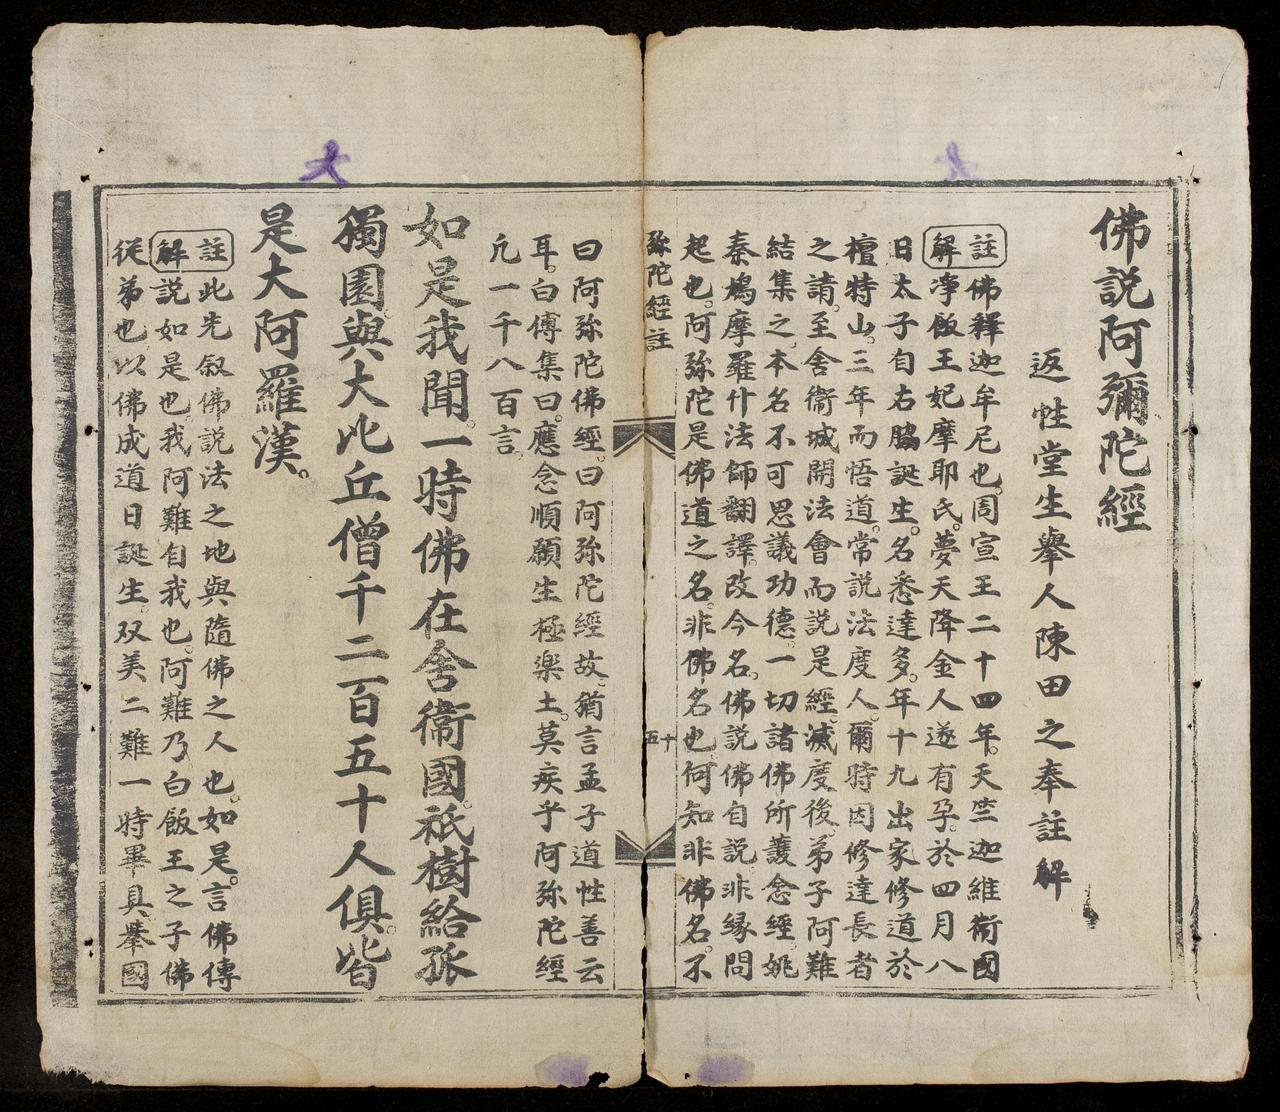 佛說阿彌陀經
返性堂生舉人陳田之奉註解
註解佛釋迦牟尼也。周宣王二十四年。天竺迦維衛國
淨飯王妃摩耶氏。夢天降金人遂有孕。於四月八
日太子自右脇誕生。名悉達多。年十九出家修道於
檀特山。三年而悟道。常說法度人。爾時因修達長者
之請。至舍衞城開法會而說是經。滅度後。弟子阿難
結集之。本名不可思議功德。一切諸佛所護念經。姚
秦鳩摩羅什法師翻譯。改今名。佛說佛自說。非縁問
起也。阿弥陀是佛道之名。非佛名也。何知非佛名。不
弥陀經註
五十
曰阿弥陀佛經。曰阿弥陀經故。猶言孟子道性善云
耳。白傅集曰。應念順願生極楽土。莫疾乎阿弥陀經
凣一千八百言。
如是我聞。一時佛在舍衞國。祇樹給孤
獨園。與大比丘僧千二百五十人俱。皆
是大阿羅漢。
註解此先叙佛說法之地與隨佛之人也。如是。言佛傳
說如是也。我阿難自我也。阿難乃白飯王之子佛
從弟也以佛成道日誕生。双美二難一時畢具。舉國
大
大